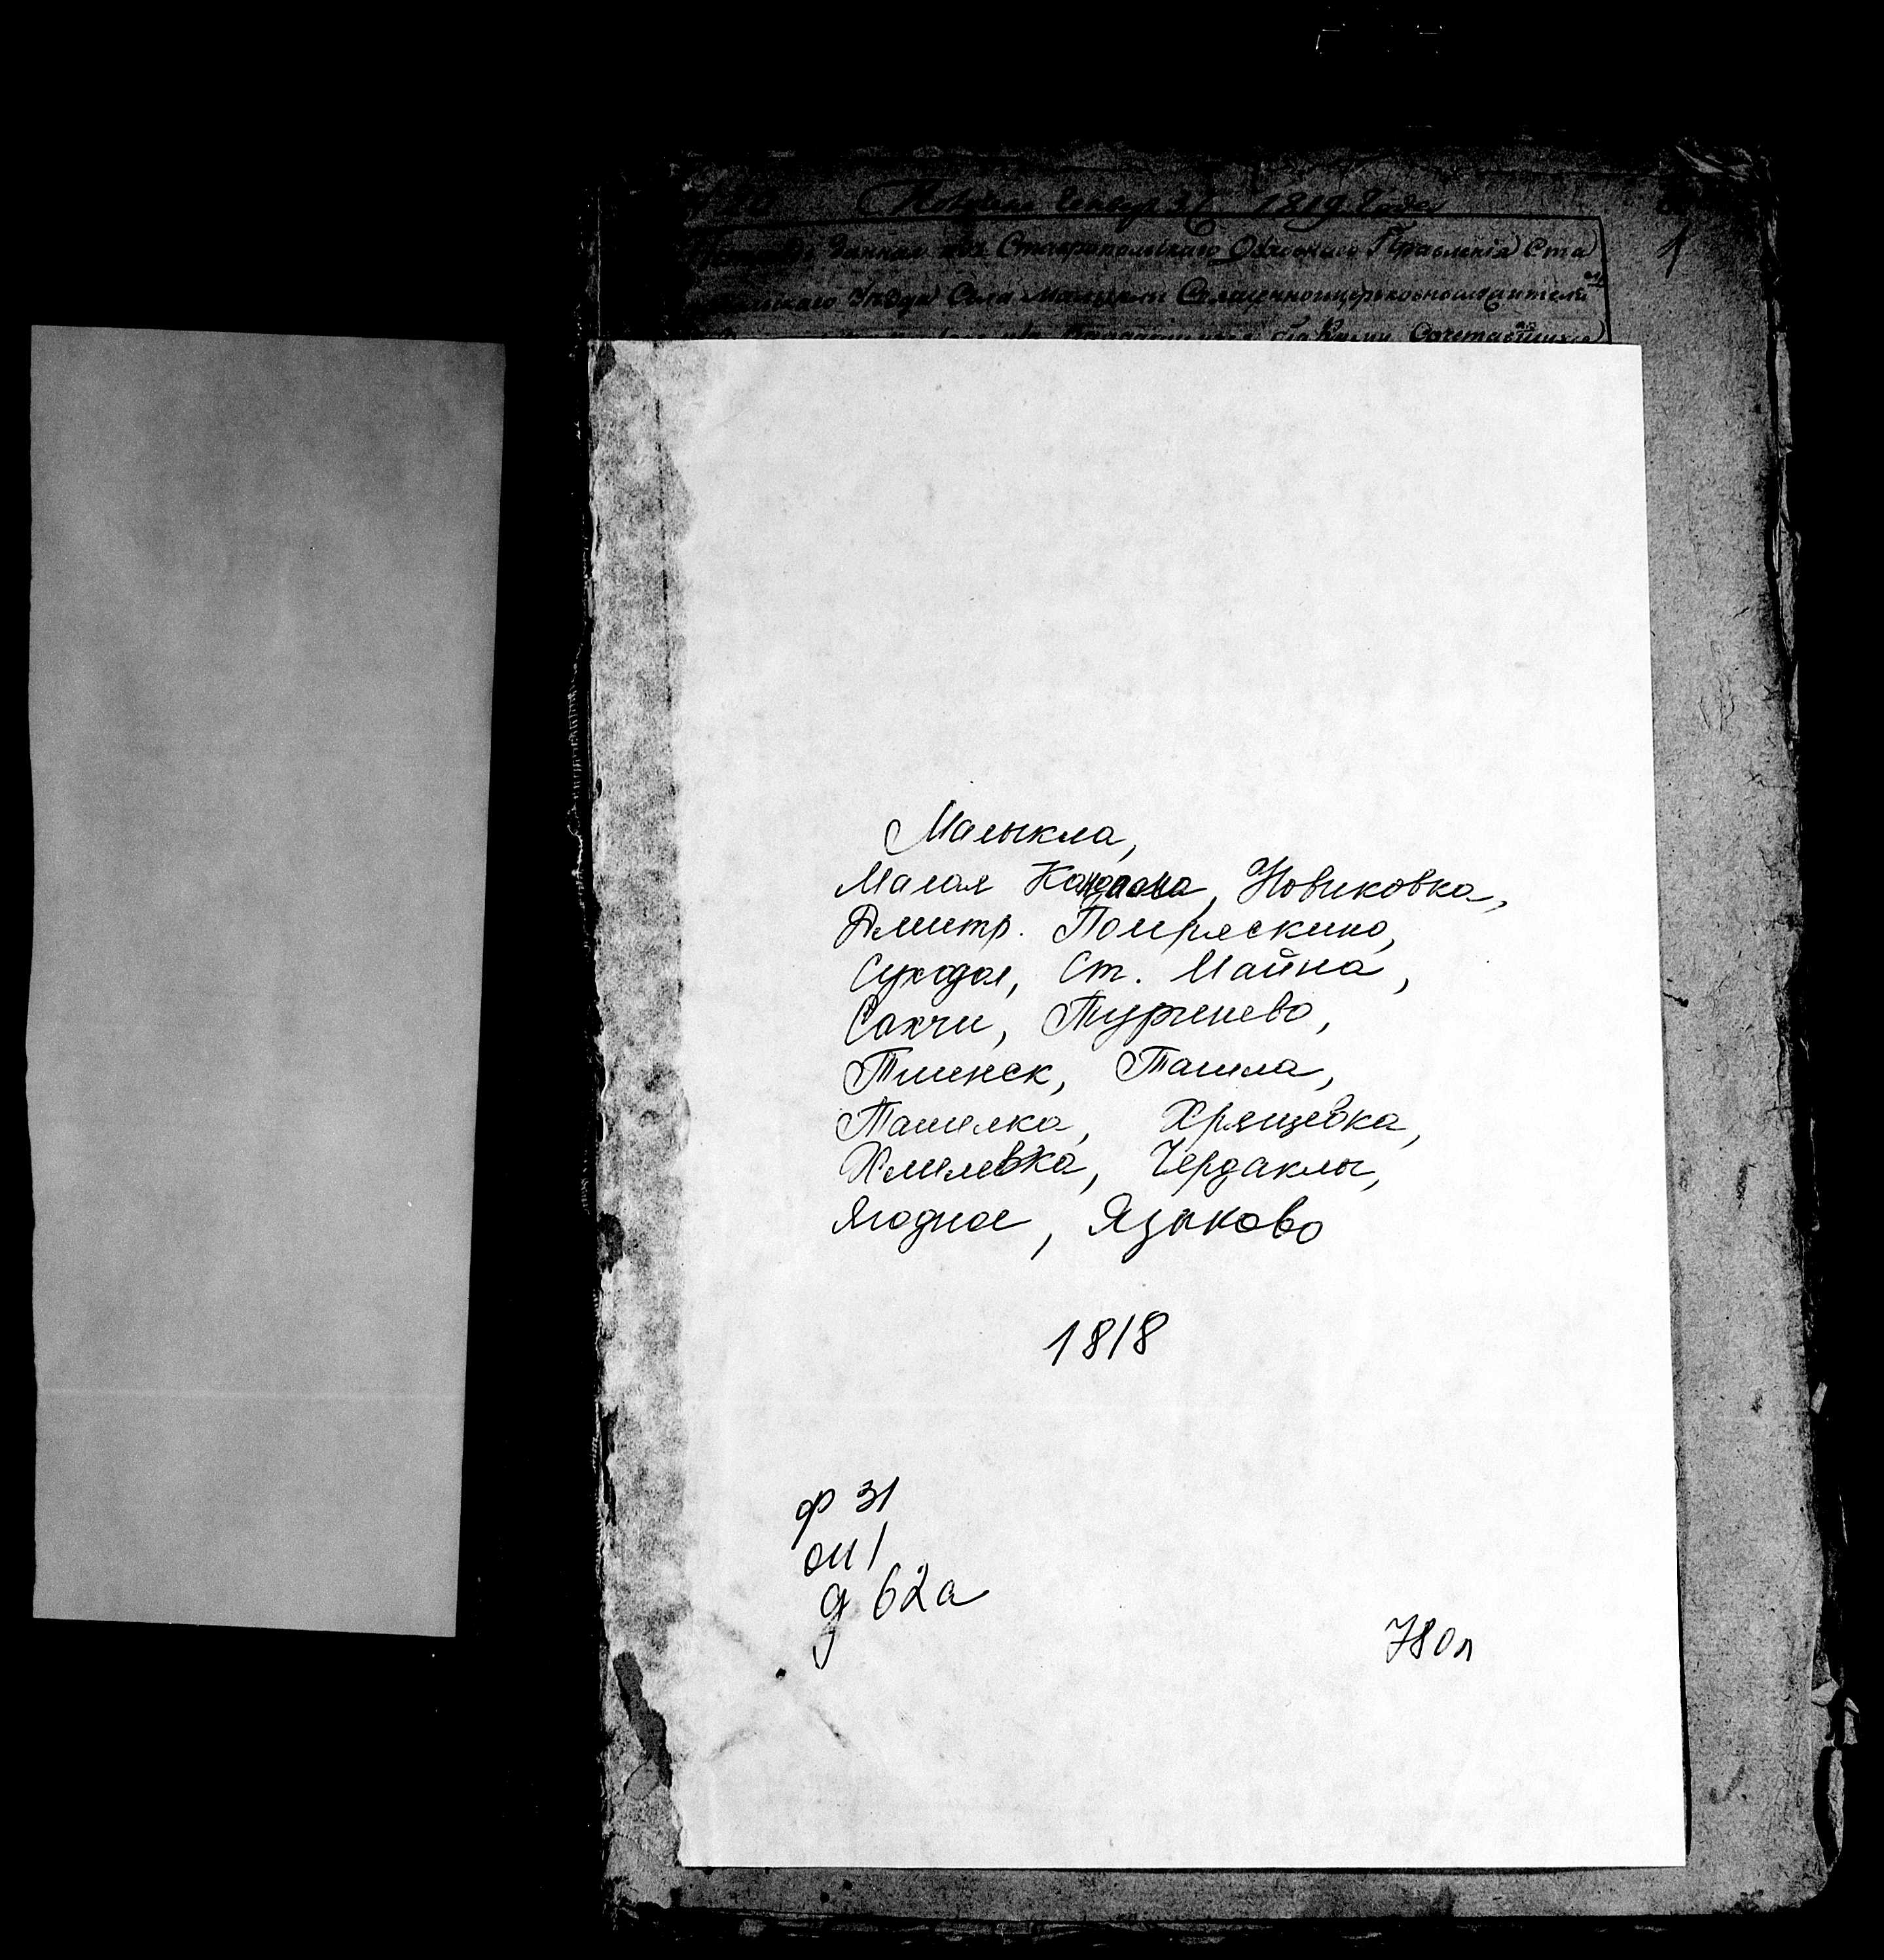 1819 Года
Данная изъ Ставропольскаго Духовнаго Правленія Ста
Уезда Села Священноцерковнослужители
1
Малыкла,
Малая Кандала, Новиковка,
Дмитр. Помряскино,
Суходол, Ст. Майна,
Сахчи, Тургенево,
Тиинск, Ташла,
Ташелка, Хрящевка,
Хмелевка, Чердаклы,
Ягодное, Языково
1818
ф 31
оп 1
д 62а
780л